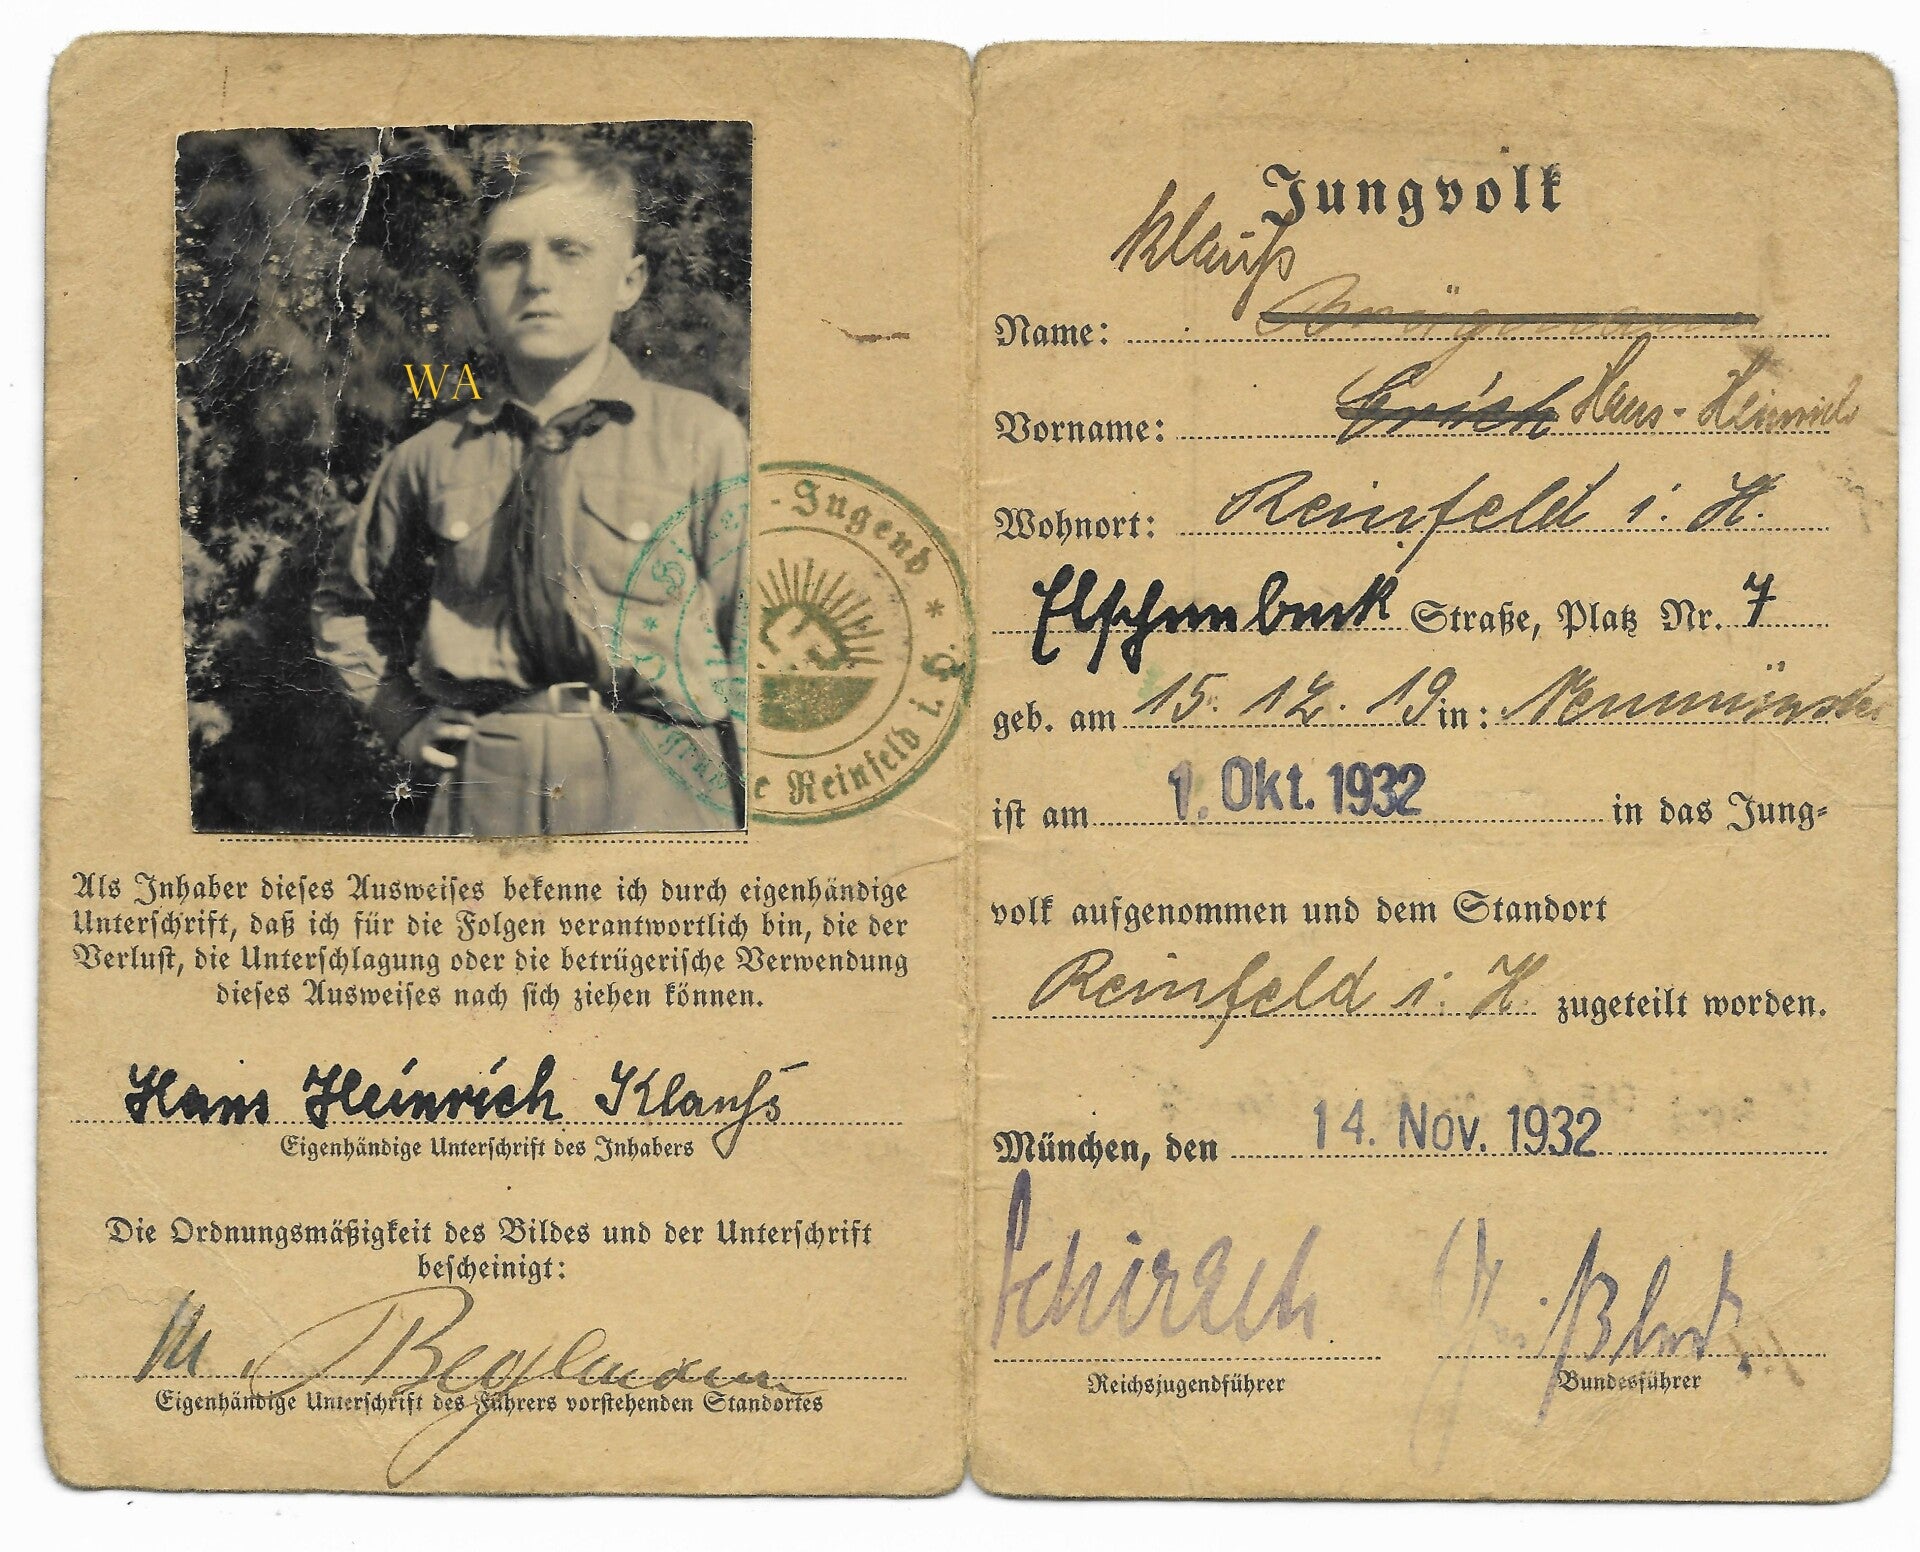 WA
Hitler-Jugend * i. H.
Reinfeld i.
Als Inhaber dieses Ausweises bekenne ich durch eigenhändige
Unterschrift, daß ich für die Folgen verantwortlich bin, die der
Verlust, die Unterschlagung oder die betrügerische Verwendung
dieses Ausweises nach sich ziehen können.
Hans Heinrich Klauß
Eigenhändige Unterschrift des Inhabers
Die Ordnungsmäßigkeit des Bildes und der Unterschrift
bescheinigt:
Eigenhändige Unterschrift des Führers vorstehenden Standortes
Jungvolk
Klauß
Name:
Vorname: Erich Hans-Heinrich
Wohnort: Reinfeld i. H.
Straße, Platz Nr. 7
geb. am 15. 12. 19 in: Neumünster
ist am 1. Okt. 1932 in das Jung-
volk aufgenommen und dem Standort
Reinfeld i. H. zugeteilt worden.
München, den 14. Nov. 1932
Schirach
Reichsjugendführer
Bundesführer